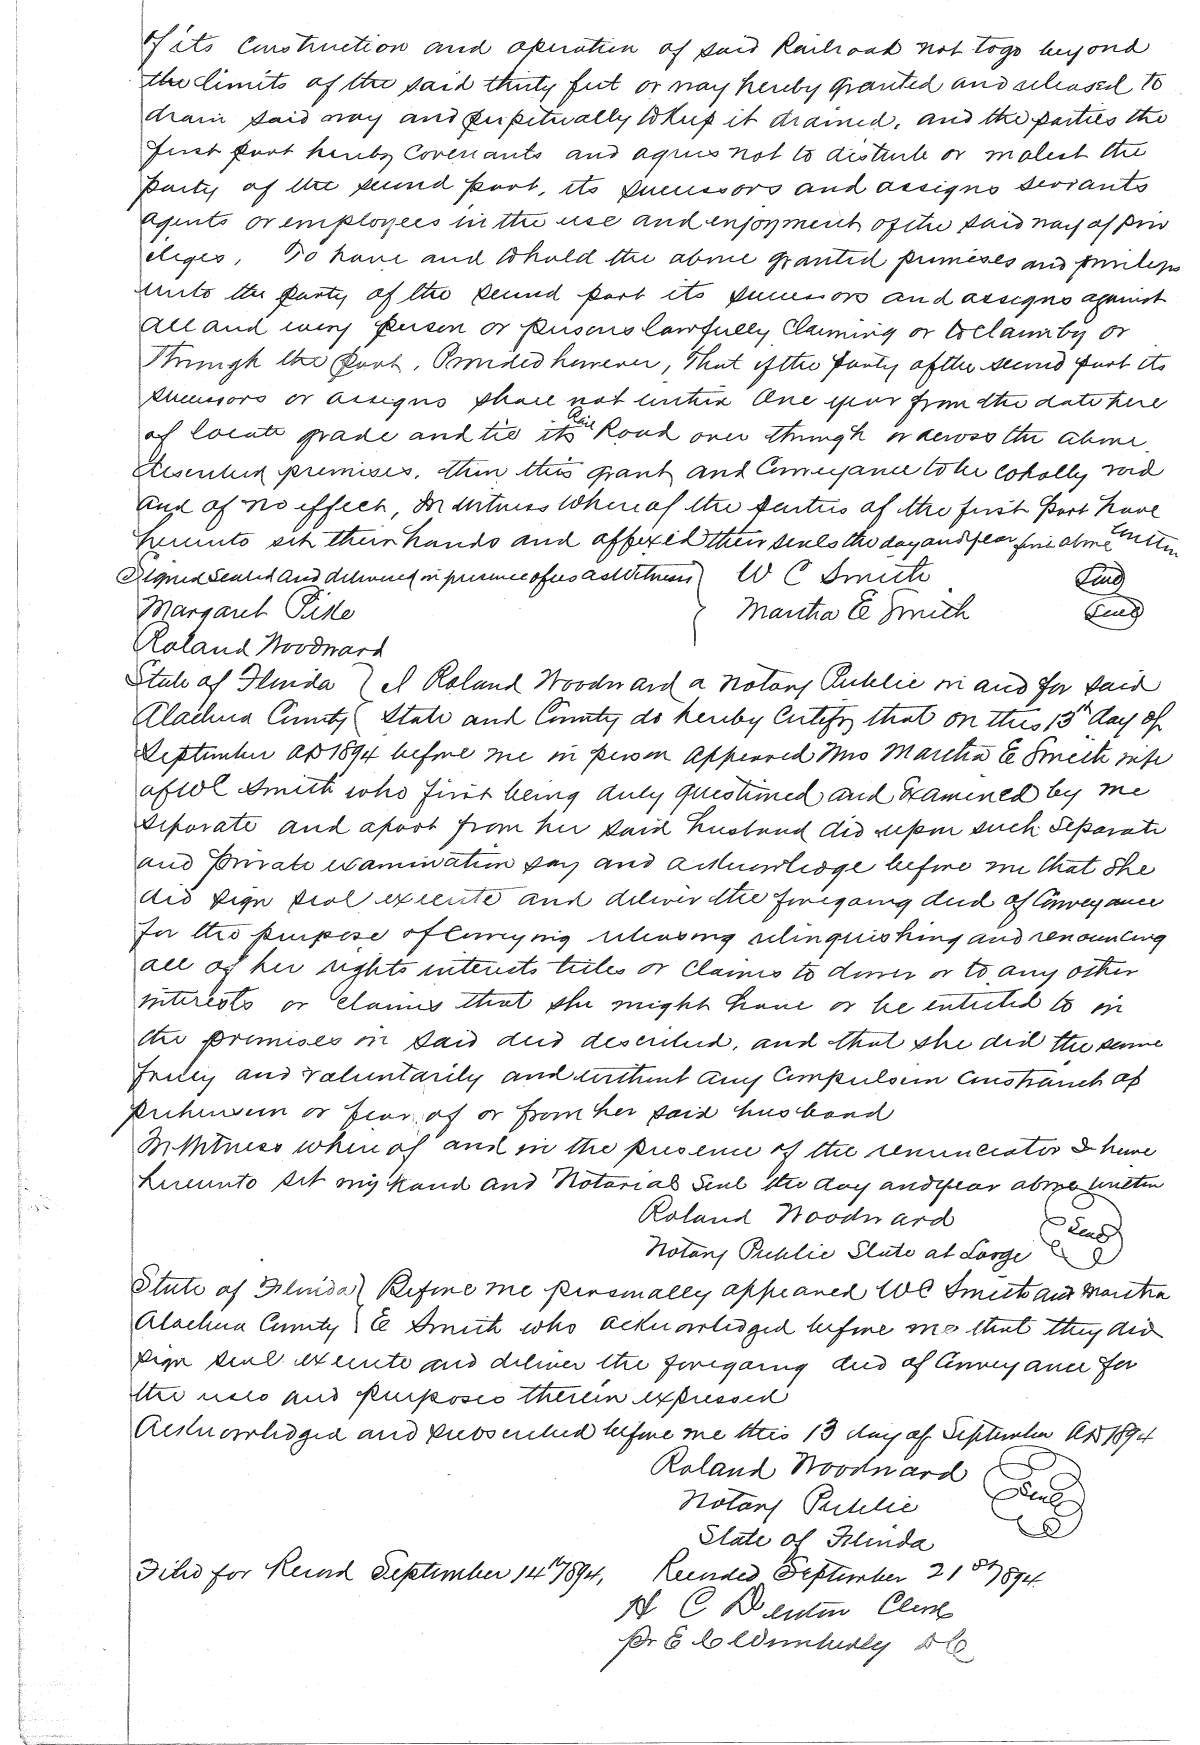 of its Construction and operation of said Railroad not to go beyond
the limits of the said thirty feet or way hereby granted and released to
drain said way and perpetually to keep it drained, and the parties the
first part hereby Covenants and agrees not to disturb or molest the
party of the second part, its successors and assigns servants
agents or employees in the use and enjoyment of the said way of priv
ileges, To have and to hold the above granted premises and privileges
unto the party of the second part its successors and assigns against
all and every person or persons lawfully Claiming or to claim by or
Through the part, Provided however, That if the party of the second part its
successors or assigns shall not within One year from the date here
of locate grade and tie its Rail Road over through or across the above
described premises, then this grant and Conveyance to be wholly void
and of no effect, In witness Whereof the parties of the first part have
hereunto set their hands and affixed their seals the day and year first above written
Signed Sealed and delivered in presence of us as Witness } W C Smith Seal
Margaret Pike } Martha E Smith Seal
Roland Woodward
State of Florida } I Roland Woodward a Notary Public in and for said
Alachua County } State and County do hereby Certify that on this 13th day of
September AD 1894 before me in person appeared Mrs Martha E Smith wife
of W C Smith who first being duly questioned and Examined by me
separate and apart from her said husband did upon such Separate
and private examination say and acknowledge before me that she
did sign seal execute and deliver the foregoing deed of Conveyance
for the purpose of Conveying releasing relinquishing and renouncing
all of her rights interests titles or Claims to dower or to any other
interests or Claims that she might have or be entitled to in
the premises in said deed described, and that she did the same
freely and voluntarily and without any Compulsion Constraint ap
prehension or fear of or from her said husband
In Witness whereof and in the presence of the renunciator I have
hereunto set my hand and Notarial Seal the day and year above written
Roland Woodward Seal
Notary Public State at Large
State of Florida } Before me personally appeared W C Smith and Martha
Alachua County } E Smith who acknowledged before me that they did
sign seal execute and deliver the foregoing deed of Conveyance for
the uses and purposes therein expressed
Acknowledged and subscribed before me this 13 day of September AD 1894
Roland Woodward Seal
Notary Public
State of Florida
Filed for Record September 14th 1894, Recorded September 21st 1894
H C Denton Clerk
Pr E C Wimberly D C